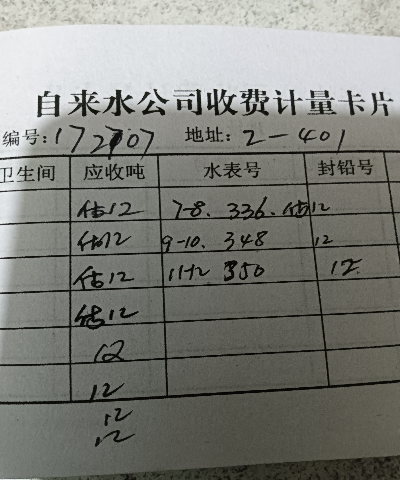 自来水公司收费计量卡片
编号:172707 地址:2-401
卫生间 应收吨 水表号 封铅号
估12 7-8. 336. 估12
估12 9-10. 348 12
估12 11-12 350 12
估12
12
12
12
12